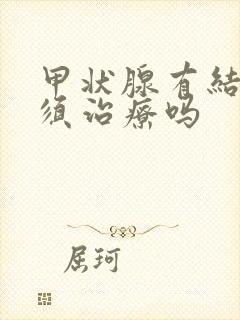 甲状腺有結
须治療吗
屈珂